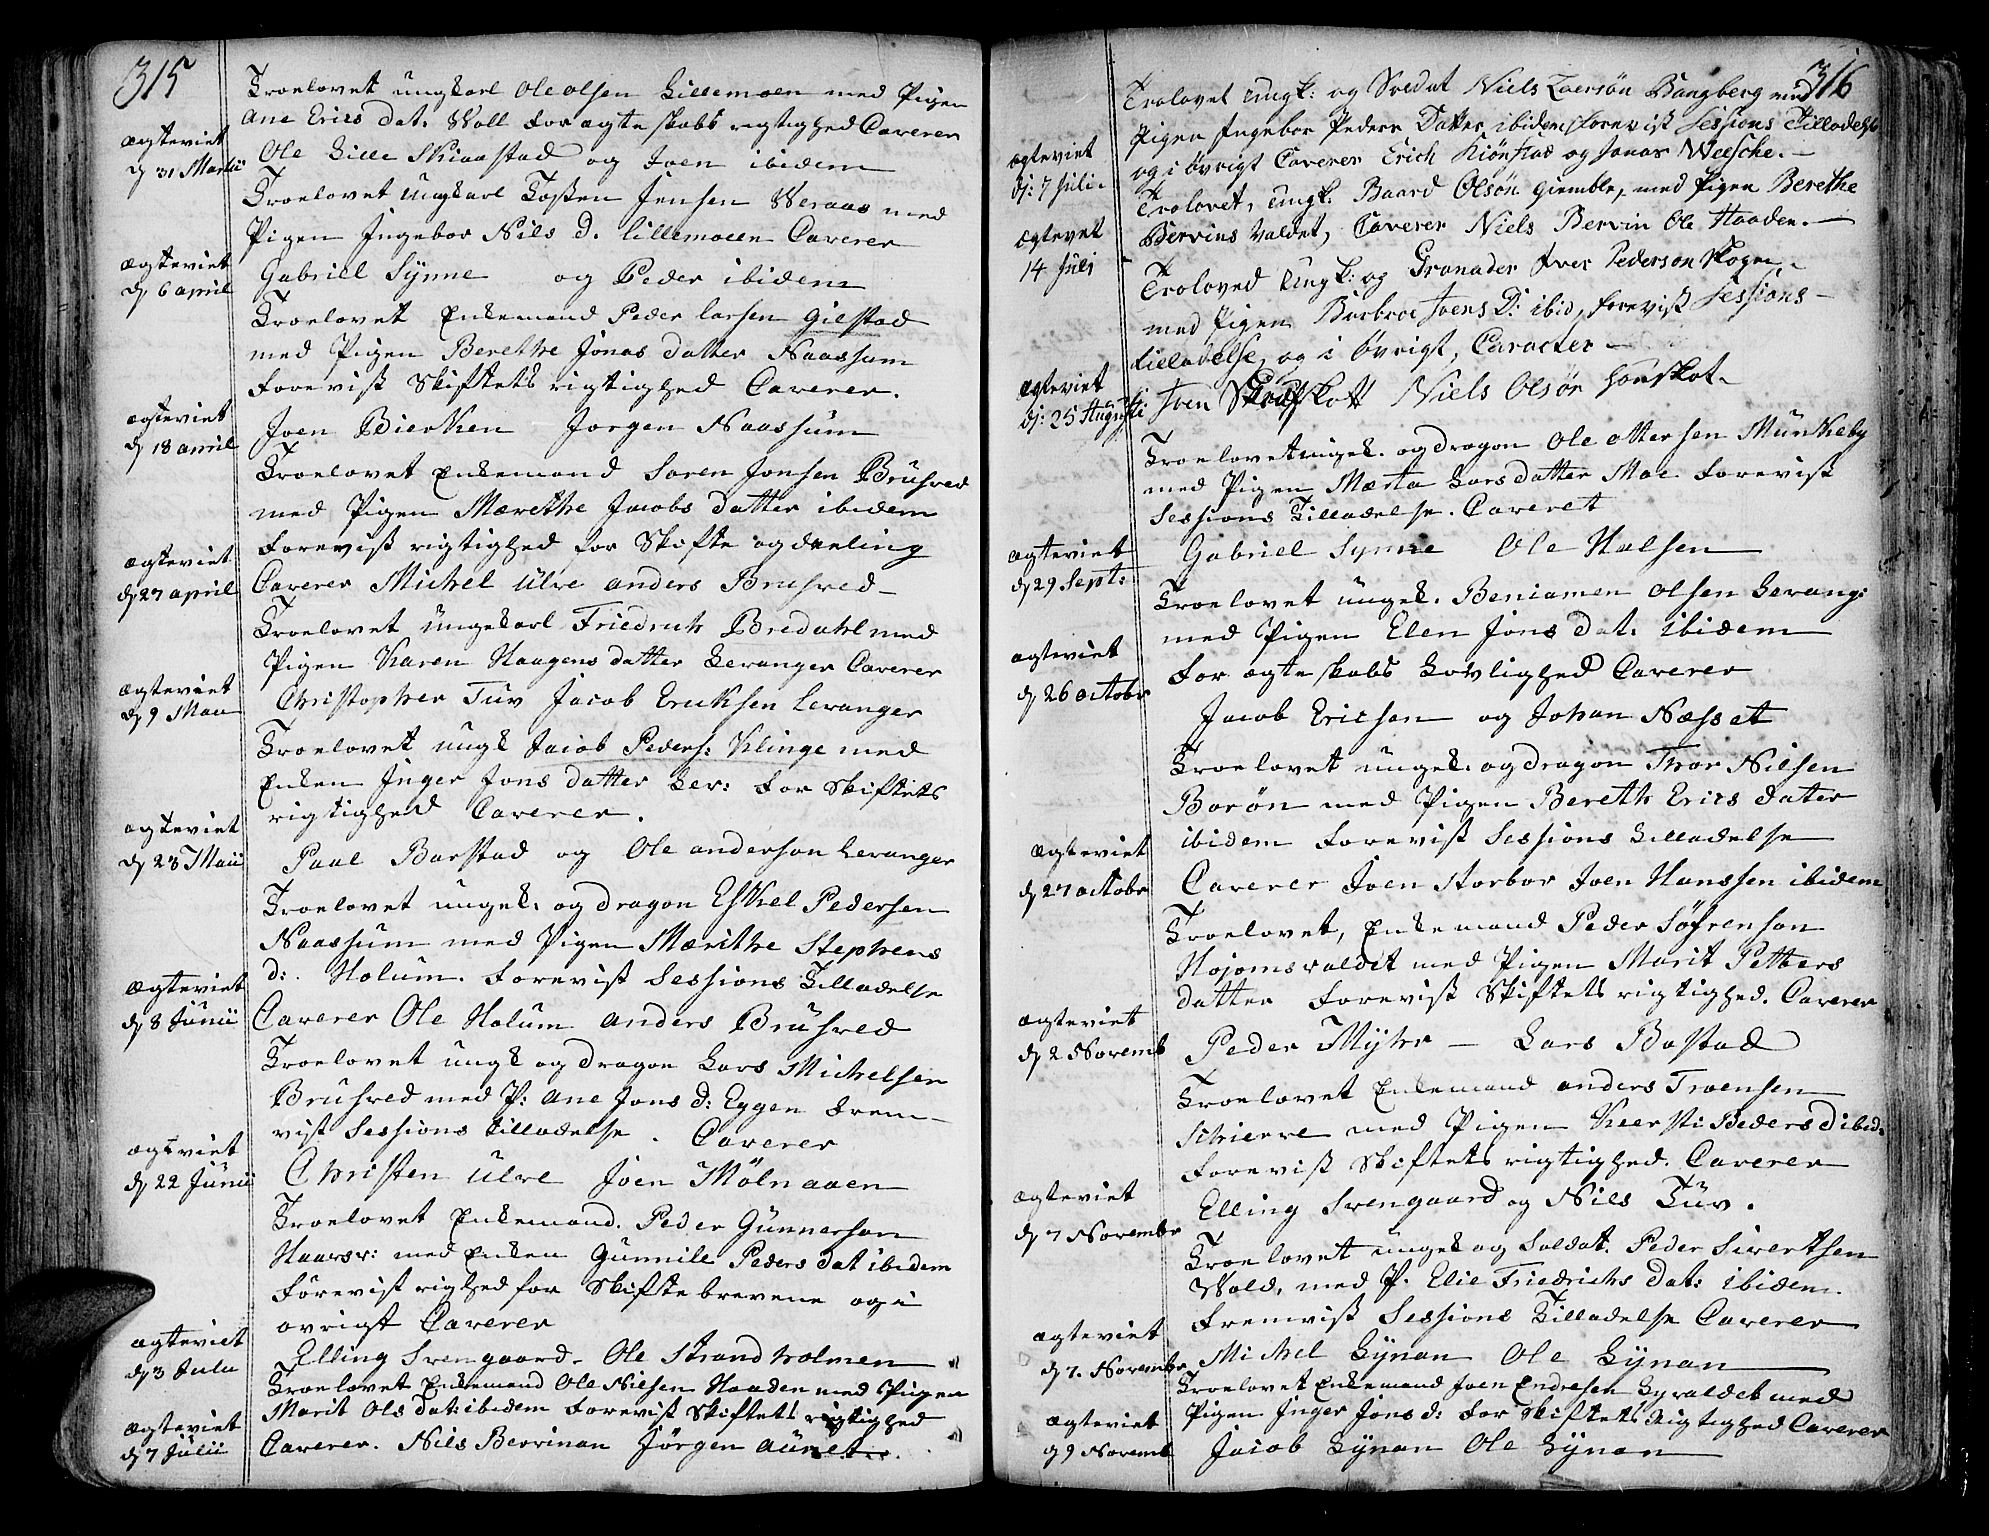 315
Troelovet ungkarl Ole Olsen Lillemoen med Pigen
Ane Erics dat. Woll for ægteskabs rigtighed Caverer
Ole Lille Skiaastad og Joen ibidem
ægteviet
d 31 Martii
Troelovet Ungkarl Tosten Jensen Weraas med
Pigen Ingebor Nils D. Lillemoen Caverer
Gabriel Synne og Peder ibidem
ægteviet
d 6 april
Troelovet Enkemand Peder Larsen Gilstad
med Pigen Berethe Jonas datter Naassum
Forevist Skiftets rigtighed Caverer.
Joen Bierken Jorgen Naassum
ægteviet
d 18 april
Troelovet Enkemand Soren Jonsen Brusved
med Pigen Marethe Jacobs datter ibidem
Forevist rigtighed for Skifte og deeling
Caverer Michel Ulve anders Brusved
ægteviet
d 27 april
Troelovet Ungekarl Friedrich Bredahl med
Pigen Karen Haagens datter Levanger Caverer
Christopher Tuv Jacob Ericksen Levanger
ægteviet
d 9 Maii
Troelovet ungk Jacob Peders: Klinge med
Enken Inger Jons datter Lev: For Skiftets
rigtighed Caverer.
Paal Barstad og Ole anderson Levanger
ægteviet
d 23 Maii
Troelovet ungk. og dragon Eskel Pedersen
Naassum med Pigen Marithe Stephens
d: Holum. Forevist Sessions Tilladelse
Caverer Ole Holum anders Brusved
ægteviet
d 8 Junii
Troelovet ungk og dragon Lars Michelsen
Brusved med P: ane Jons d: Eggen Frem
vist Sessions tilladelse. Caverer
Christen Ulve Joen Mølnaaen
ægteviet
d 22 Junii
Troelovet Enkemand. Peder Gunnerson
Haarsv: med Enken Gunnile Peders dat ibidem
Forevist righed for Skifte brevene og i
ovrigt Caverer
Elling Svengaard. Ole Strandholmen
ægteviet
d 3 Julii
Troelovet Enkemand Ole Nielsen Haaden med Pigen
Marit Ols dat: ibidem Forevist Skiftets rigtighed
Caverer. Nils Bervinan Jørgen auret
ægteviet
d 7 Julii
316
Trolovet Ungk: og Soldat Niels Iversøn Bangberg med
Pigen Ingebor Peders Datter ibidem, forevist Sessions Tilladelse
og i øvrigt Caverer Erich Kiønstad og Jonas Weesche.
ægteviet
d: 7 Julii
Trolovet, Ungk. Baard Olsøn Giemble, med Pigen Berethe
Bervins Valdet, Caverer Niels Bervin Ole Haaden.
ægtevet
14 Juli
Troloved Ungk: og Granader Iver Pederson Skogen,
med Pigen Barbroe Joens D: ibid, forevist Sessions
tilladelse, og i øvrigt, Caracter
Iven Skot Niels Olsøn Hojskot
ægteviet
d: 25 Augusti
Troelovet ungk. og dragon Ole ottersen Munkeby
med Pigen Marta Lars datter Moe Forevist
Sessions Tilladelse. Caveret
Gabriel Synne Ole Halsen
ægteviet
d 29 Sept:
Troelovet ungk. Beniamen Olsen Levang:
med Pigen Elen Jons dat: ibidem
For ægteskabs Lovlighed Caverer
Jacob Ericsen og Johan Næsset
ægteviet
d 26 octobr
Troelovet ungk. og dragon Thor Nilsen
Borøn med Pigen Bereth Erics dater
ibidem Forevist Sessions Tilladelse
Caverer Joen Storbor Joen Hanssen ibidem
ægteviet
d 27 octobr
Troelovet, Enkemand Peder Søfrenson
Hojomsvaldet med Pigen Marit Petters
datter Forevist Skiftets rigtighed. Caverer
Peder Myhr — Lars Bastad
ægteviet
d 2 Novemb
Troelovet Enkemand anders Troensen
Schierve med Pigen Kiersti Peders d ibid:
Forevist Skiftets rigtighed. Caverer
Elling Svengaard og Nils Tuv.
ægteviet
d 7 Novembr
Troelovet ungk og Soldat. Peder Sivertsen
Wold, med P. Elie Friedrichs dat: ibidem.
Fremvist Sessions Tilladelse Caverer
Michel Lynan Ole Lynan
ægteviet
d 7. Novembr
Troelovet Enkemand Joen Endresen Lyvaldet med
Pigen Inger Jons d: For Skiftets Rigtighed Caverer
Jacob Lynan Ole Lynan
ægteviet
d 9 Novemb